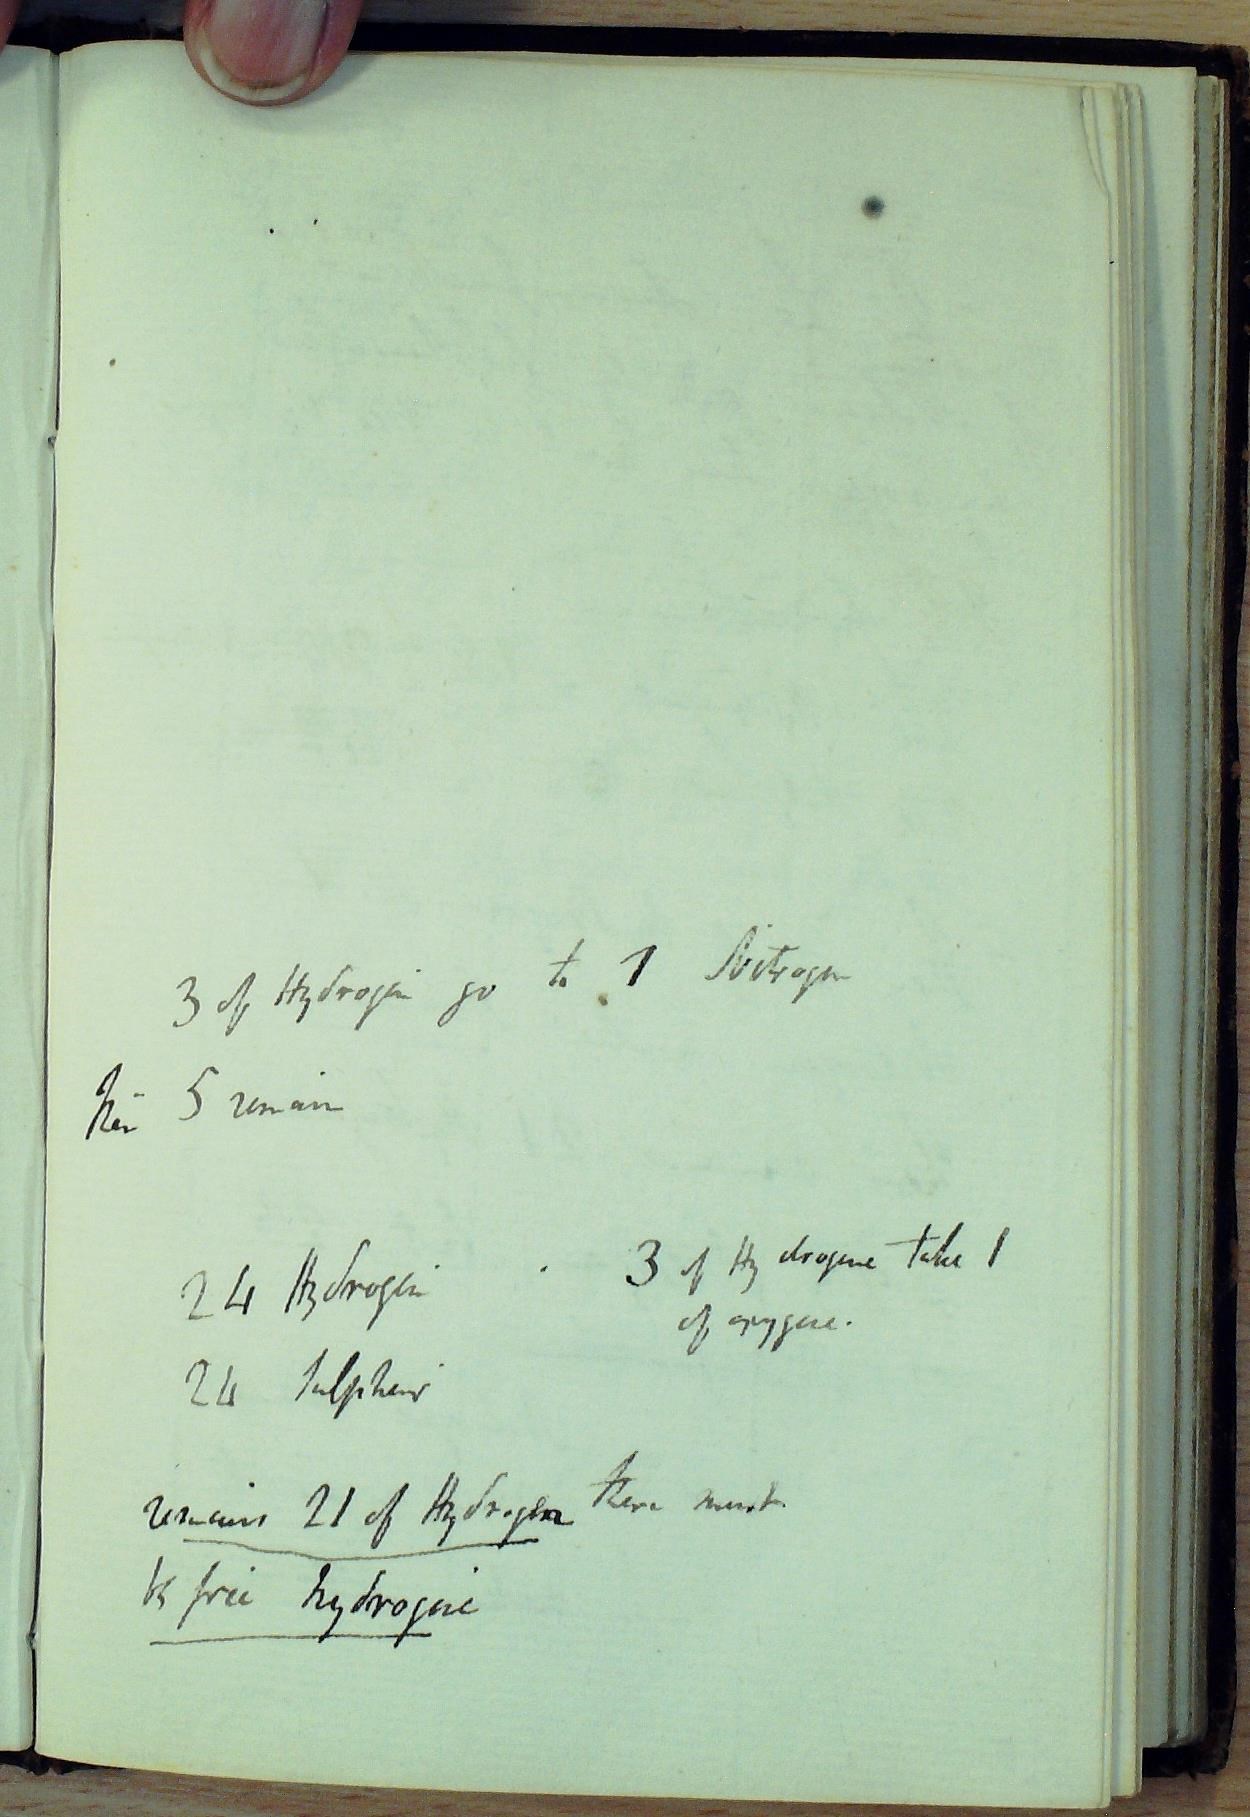 3 of Hydrogen go to 1 Nitrogen
then 5 remain
24 Hydrogen
3 of Hydrogene take 1
of oxygene.
24 Sulphur
remains 21 of Hydrogen there must
be free hydrogene